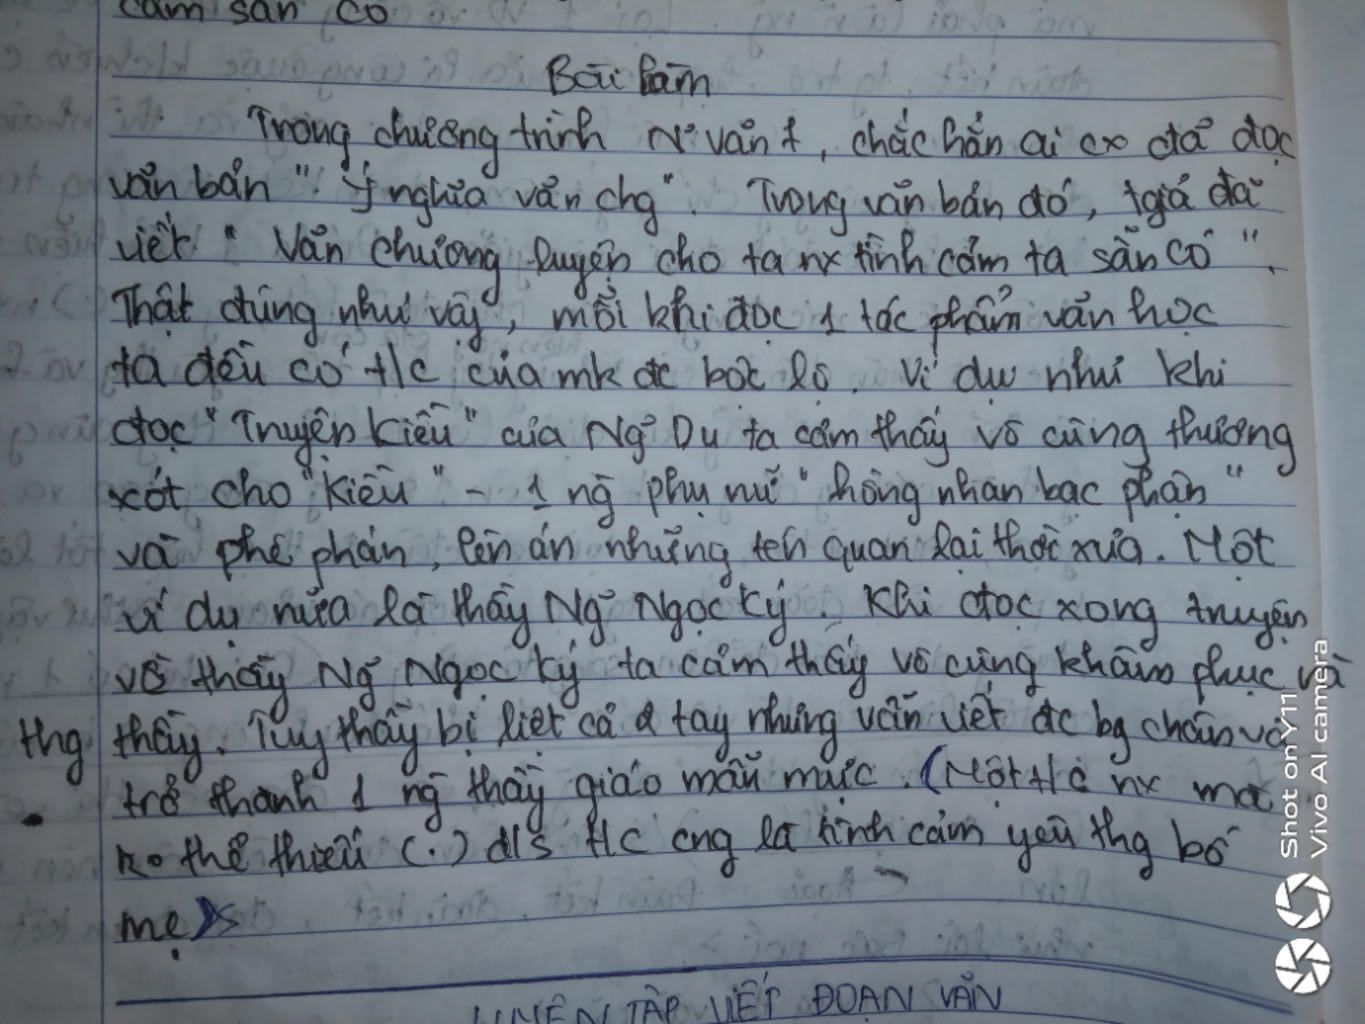 cảm sẵn có
Bài làm
Trong chương trình Ng̃ văn 7, chắc hẳn ai cx đã đọc
văn bản "Ý nghĩa văn chg". Trong văn bản đó, tgiả đã
viết "Văn chương luyện cho ta nx tình cảm ta sẵn có".
Thật đúng như vậy, mỗi khi đọc 1 tác phẩm văn học
ta đều có t/c của mk đc bộc lộ. Ví dụ như khi
đọc "Truyện Kiều" của Ng̃ Du ta cảm thấy vô cùng thương
xót cho "Kiều" - 1 ng̀ phụ nữ "hồng nhan bạc phận"
và phê phán, lên án những tên quan lại thời xưa. Một
ví dụ nữa là thầy Ng̃ Ngọc Ký. Khi đọc xong truyện
về thầy Ng̃ Ngọc Ký ta cảm thấy vô cùng khâm phục và
thg thầy. Tuy thầy bị liệt cả 2 tay nhưng vẫn viết đc bg chân và
trở thành 1 ng̀ thầy giáo mẫu mực. (Một t/c nx mà
ko thể thiếu (.) đ/s t/c cng là tình cảm yêu thg bố
mẹ)
LUYỆN TẬP VIẾT ĐOẠN VĂN
Shot on Y11
Vivo AI camera